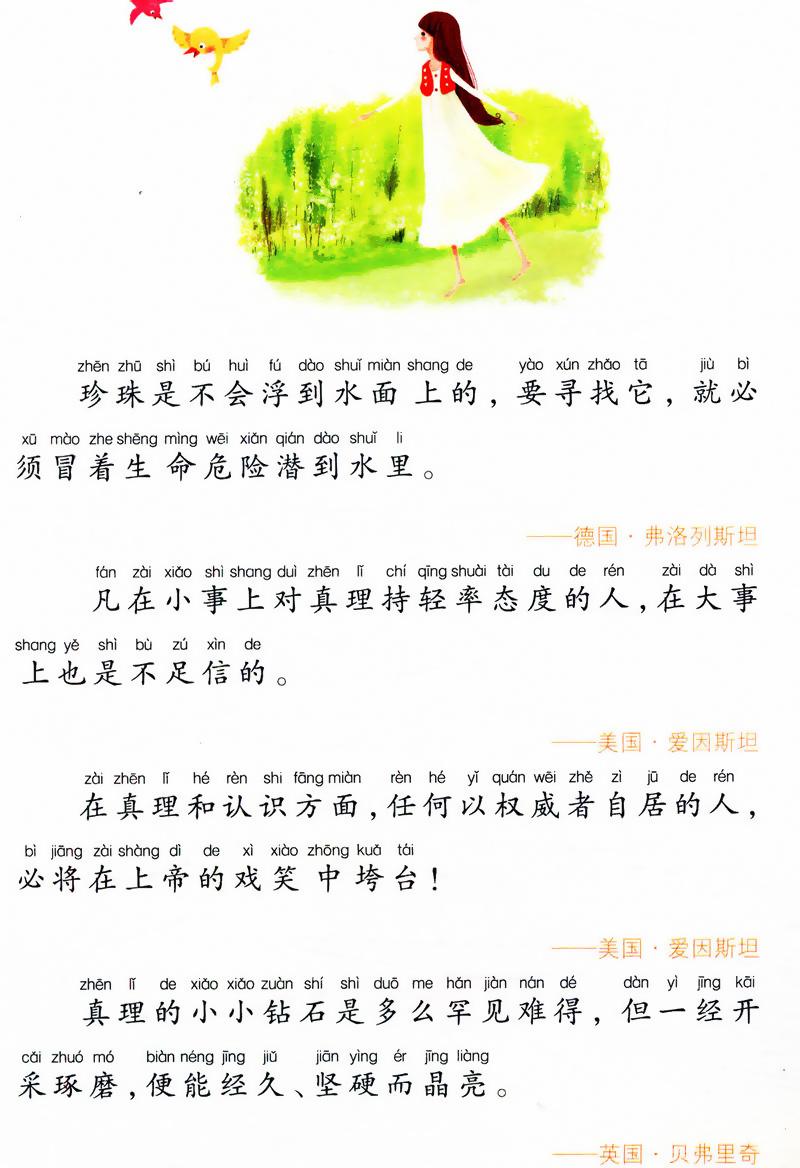 zhēn zhū shì bú huì fú dào shuǐ miàn shang de yào xún zhǎo tā jiù bì
珍珠是不会浮到水面上的，要寻找它，就必
xū mào zhe shēng mìng wēi xiǎn qián dào shuǐ li
须冒着生命危险潜到水里。
——德国·弗洛列斯坦
fán zài xiǎo shì shang duì zhēn lǐ chí qīng shuài tài du de rén zài dà shì
凡在小事上对真理持轻率态度的人，在大事
shang yě shì bù zú xìn de
上也是不足信的。
——美国·爱因斯坦
zài zhēn lǐ hé rèn shi fāng miàn rèn hé yǐ quán wēi zhě zì jū de rén
在真理和认识方面，任何以权威者自居的人，
bì jiāng zài shàng dì de xì xiào zhōng kuǎ tái
必将在上帝的戏笑中垮台！
——美国·爱因斯坦
zhēn lǐ de xiǎo xiǎo zuàn shí shì duō me hǎn jiàn nán dé dàn yì jīng kāi
真理的小小钻石是多么罕见难得，但一经开
cǎi zhuó mó biàn néng jīng jiǔ jiān yìng ér jīng liàng
采琢磨，便能经久、坚硬而晶亮。
——英国·贝弗里奇